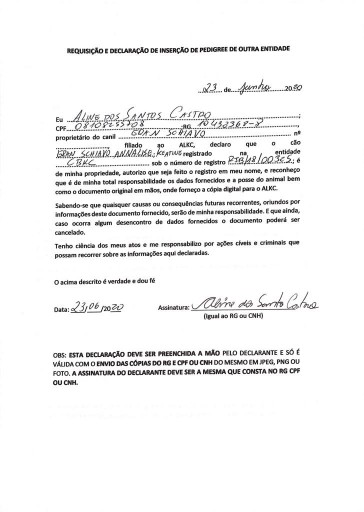 REQUISIÇÃO E DECLARAÇÃO DE INSERÇÃO DE PEDIGREE DE OUTRA ENTIDADE
23 de junho 2020
Eu ALINE DOS SANTOS CASTRO;
CPF RG
proprietário do canil GRAN SCHIAVO nº
, filiado ao ALKC, declaro que o cão
GRAN SCHIAVO ANNALISE registrado na entidade
CBKC sob o número de registro é
de minha propriedade, autorizo que seja feito o registro em meu nome, e reconheço
que é de minha total responsabilidade os dados fornecidos e a posse do animal bem
como o documento original em mãos, onde forneço a cópia digital para o ALKC.
Sabendo-se que quaisquer causas ou consequências futuras recorrentes, oriundos por
informações deste documento fornecido, serão de minha responsabilidade. E que ainda,
caso ocorra algum desencontro de dados fornecidos o documento poderá ser
cancelado.
Tenho ciência dos meus atos e me responsabilizo por ações cíveis e criminais que
possam recorrer sobre as informações aqui declaradas.
O acima descrito é verdade e dou fé
Data: 23/06/2020 Assinatura: Aline dos Santos Castro
(Igual ao RG ou CNH)
OBS: ESTA DECLARAÇÃO DEVE SER PREENCHIDA A MÃO PELO DECLARANTE E SÓ É
VÁLIDA COM O ENVIO DAS CÓPIAS DO RG E CPF OU CNH DO MESMO EM JPEG, PNG OU
FOTO. A ASSINATURA DO DECLARANTE DEVE SER A MESMA QUE CONSTA NO RG CPF
OU CNH.